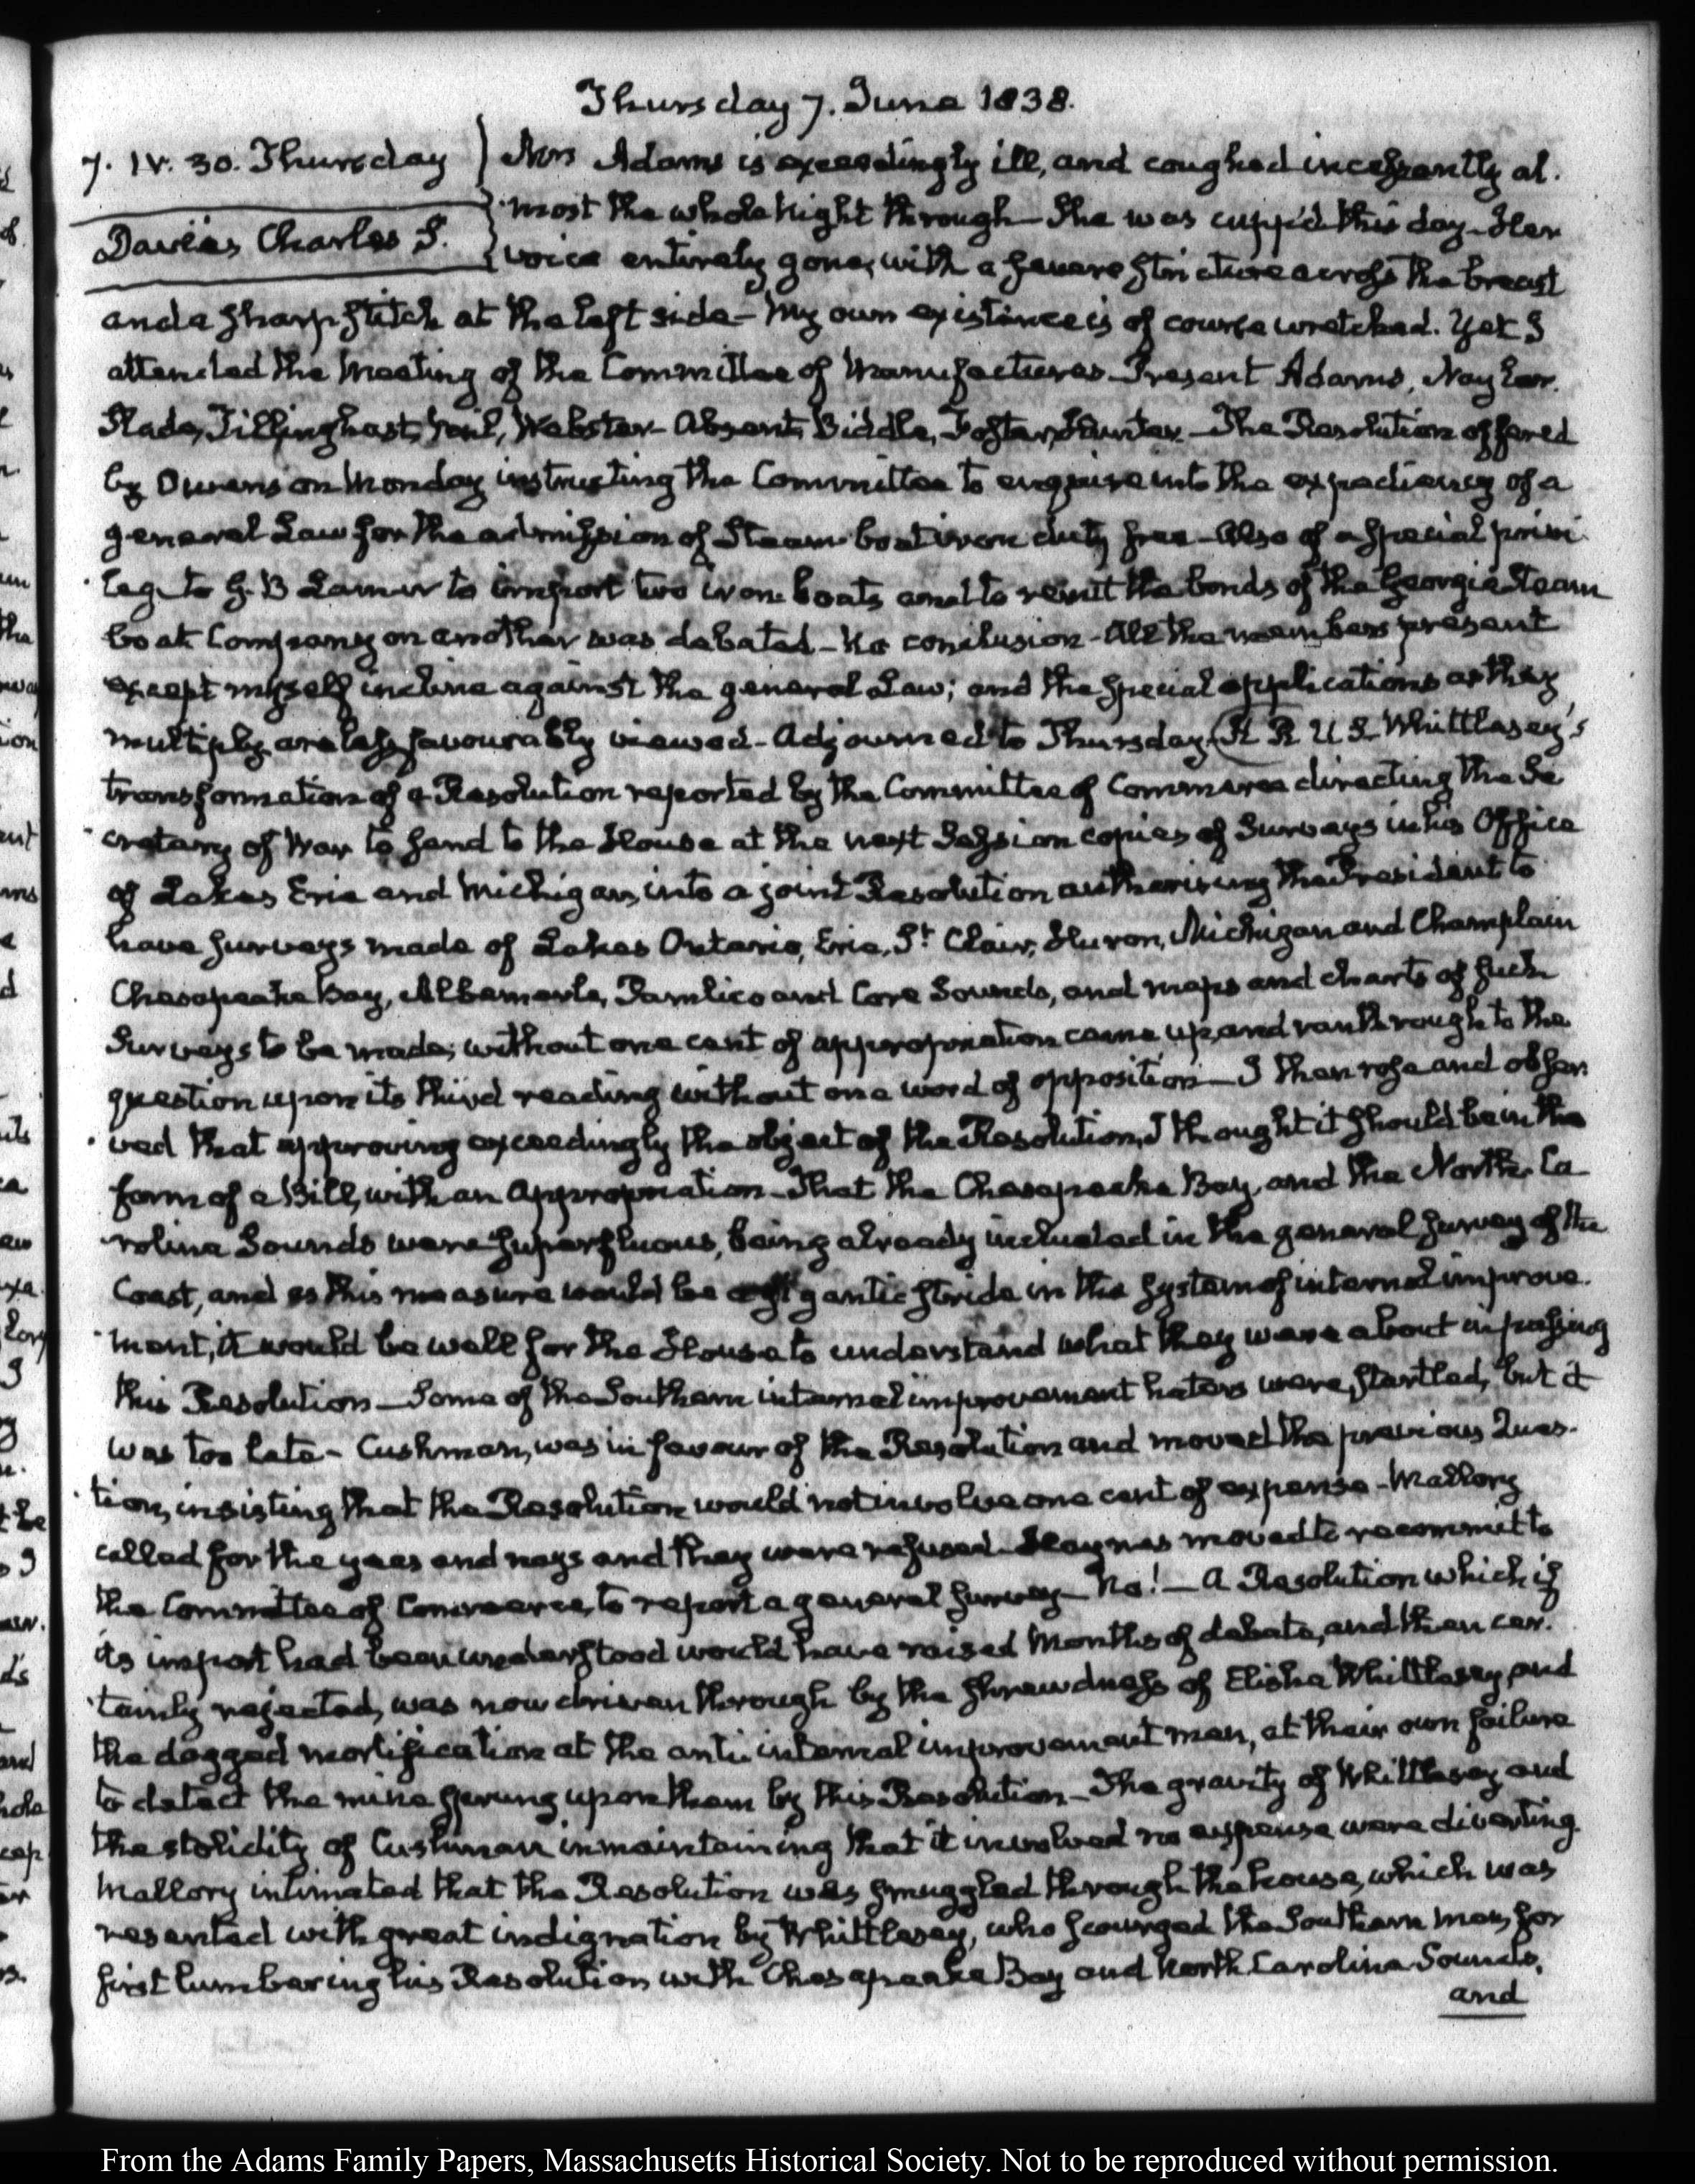 Thursday 7. June 1838.
7. IV. 30. Thursday
Davies Charles S.
Mrs Adams is exceedingly ill, and coughed incessantly al-
most the whole Night through— She was cupp'd this day— Her
voice entirely gone, with a severe stricture across the breast
and a sharp stitch at the left side— My own existence is of course wretched. Yet I
attended the Meeting of the Committee of Manufactures— Present Adams, Naylor
Slade, Tillinghast, Vail, Webster— Absent, Biddle, Foster, Hunter— The Resolution offered
by Owens on Monday instructing the Committee to enquire into the expediency of a
general Law for the admission of Steam boat iron duty free— Also of a special privi-
lege to G. B Lamar to import two iron boats and to remit the bonds of the Georgia Steam
boat Company on another was debated— No conclusion— All the members present
except myself incline against the general Law; and the special applications as they
multiply are less favourably viewed— Adjourned to Thursday. H. R. U. S. Whittlesey's
transformation of a Resolution reported by the Committee of Commerce directing the Se
cretary of War to send to the House at the next Session copies of Surveys in his Office
of Lakes Erie and Michigan, into a joint Resolution authorising the President to
have surveys made of Lakes Ontario, Erie, St Clair, Huron, Michigan and Champlain
Chesapeake Bay, Albemarle, Pamlico and Core Sounds, and maps and charts of such
Surveys to be made; without one cent of appropriation came up, and ran through to the
question upon its third reading without one word of opposition— I then rose and obser-
ved that approving exceedingly the object of the Resolution, I thought it should be in the
form of a Bill, with an Appropriation— That the Chesapeake Bay, and the North-Ca
rolina Sounds were superfluous, being already included in the general survey of the
Coast, and as this measure would be a gigantic stride in the system of internal improve-
ment, it would be well for the House to understand what they were about in passing
this Resolution— Some of the Southern internal improvement haters were startled, but it
was too late— Cushman, was in favour of the Resolution and moved the previous Ques-
tion, insisting that the Resolution would not involve one cent of expense— Mallory
called for the yeas and nays and they were refused— Haynes moved to recommit to
the Committee of Commerce, to report a general survey— No!— A Resolution which if
its import had been understood would have raised Months of debate, and then cer-
tainly rejected, was now driven through by the shrewdness of Elisha Whittlesey, and
the dogged mortification at the anti internal improvement men, at their own failure
to detect the mine sprung upon them by this Resolution— The gravity of Whittlesey and
the stolidity of Cushman in maintaining that it involved no expense were diverting.
Mallory intimated that the Resolution was smuggled through the house, which was
resented with great indignation by Whittlesey, who scourged the Southern men, for
first lumbering his Resolution with Chesapeake Bay and North-Carolina Sounds,
and
From the Adams Family Papers, Massachusetts Historical Society. Not to be reproduced without permission.